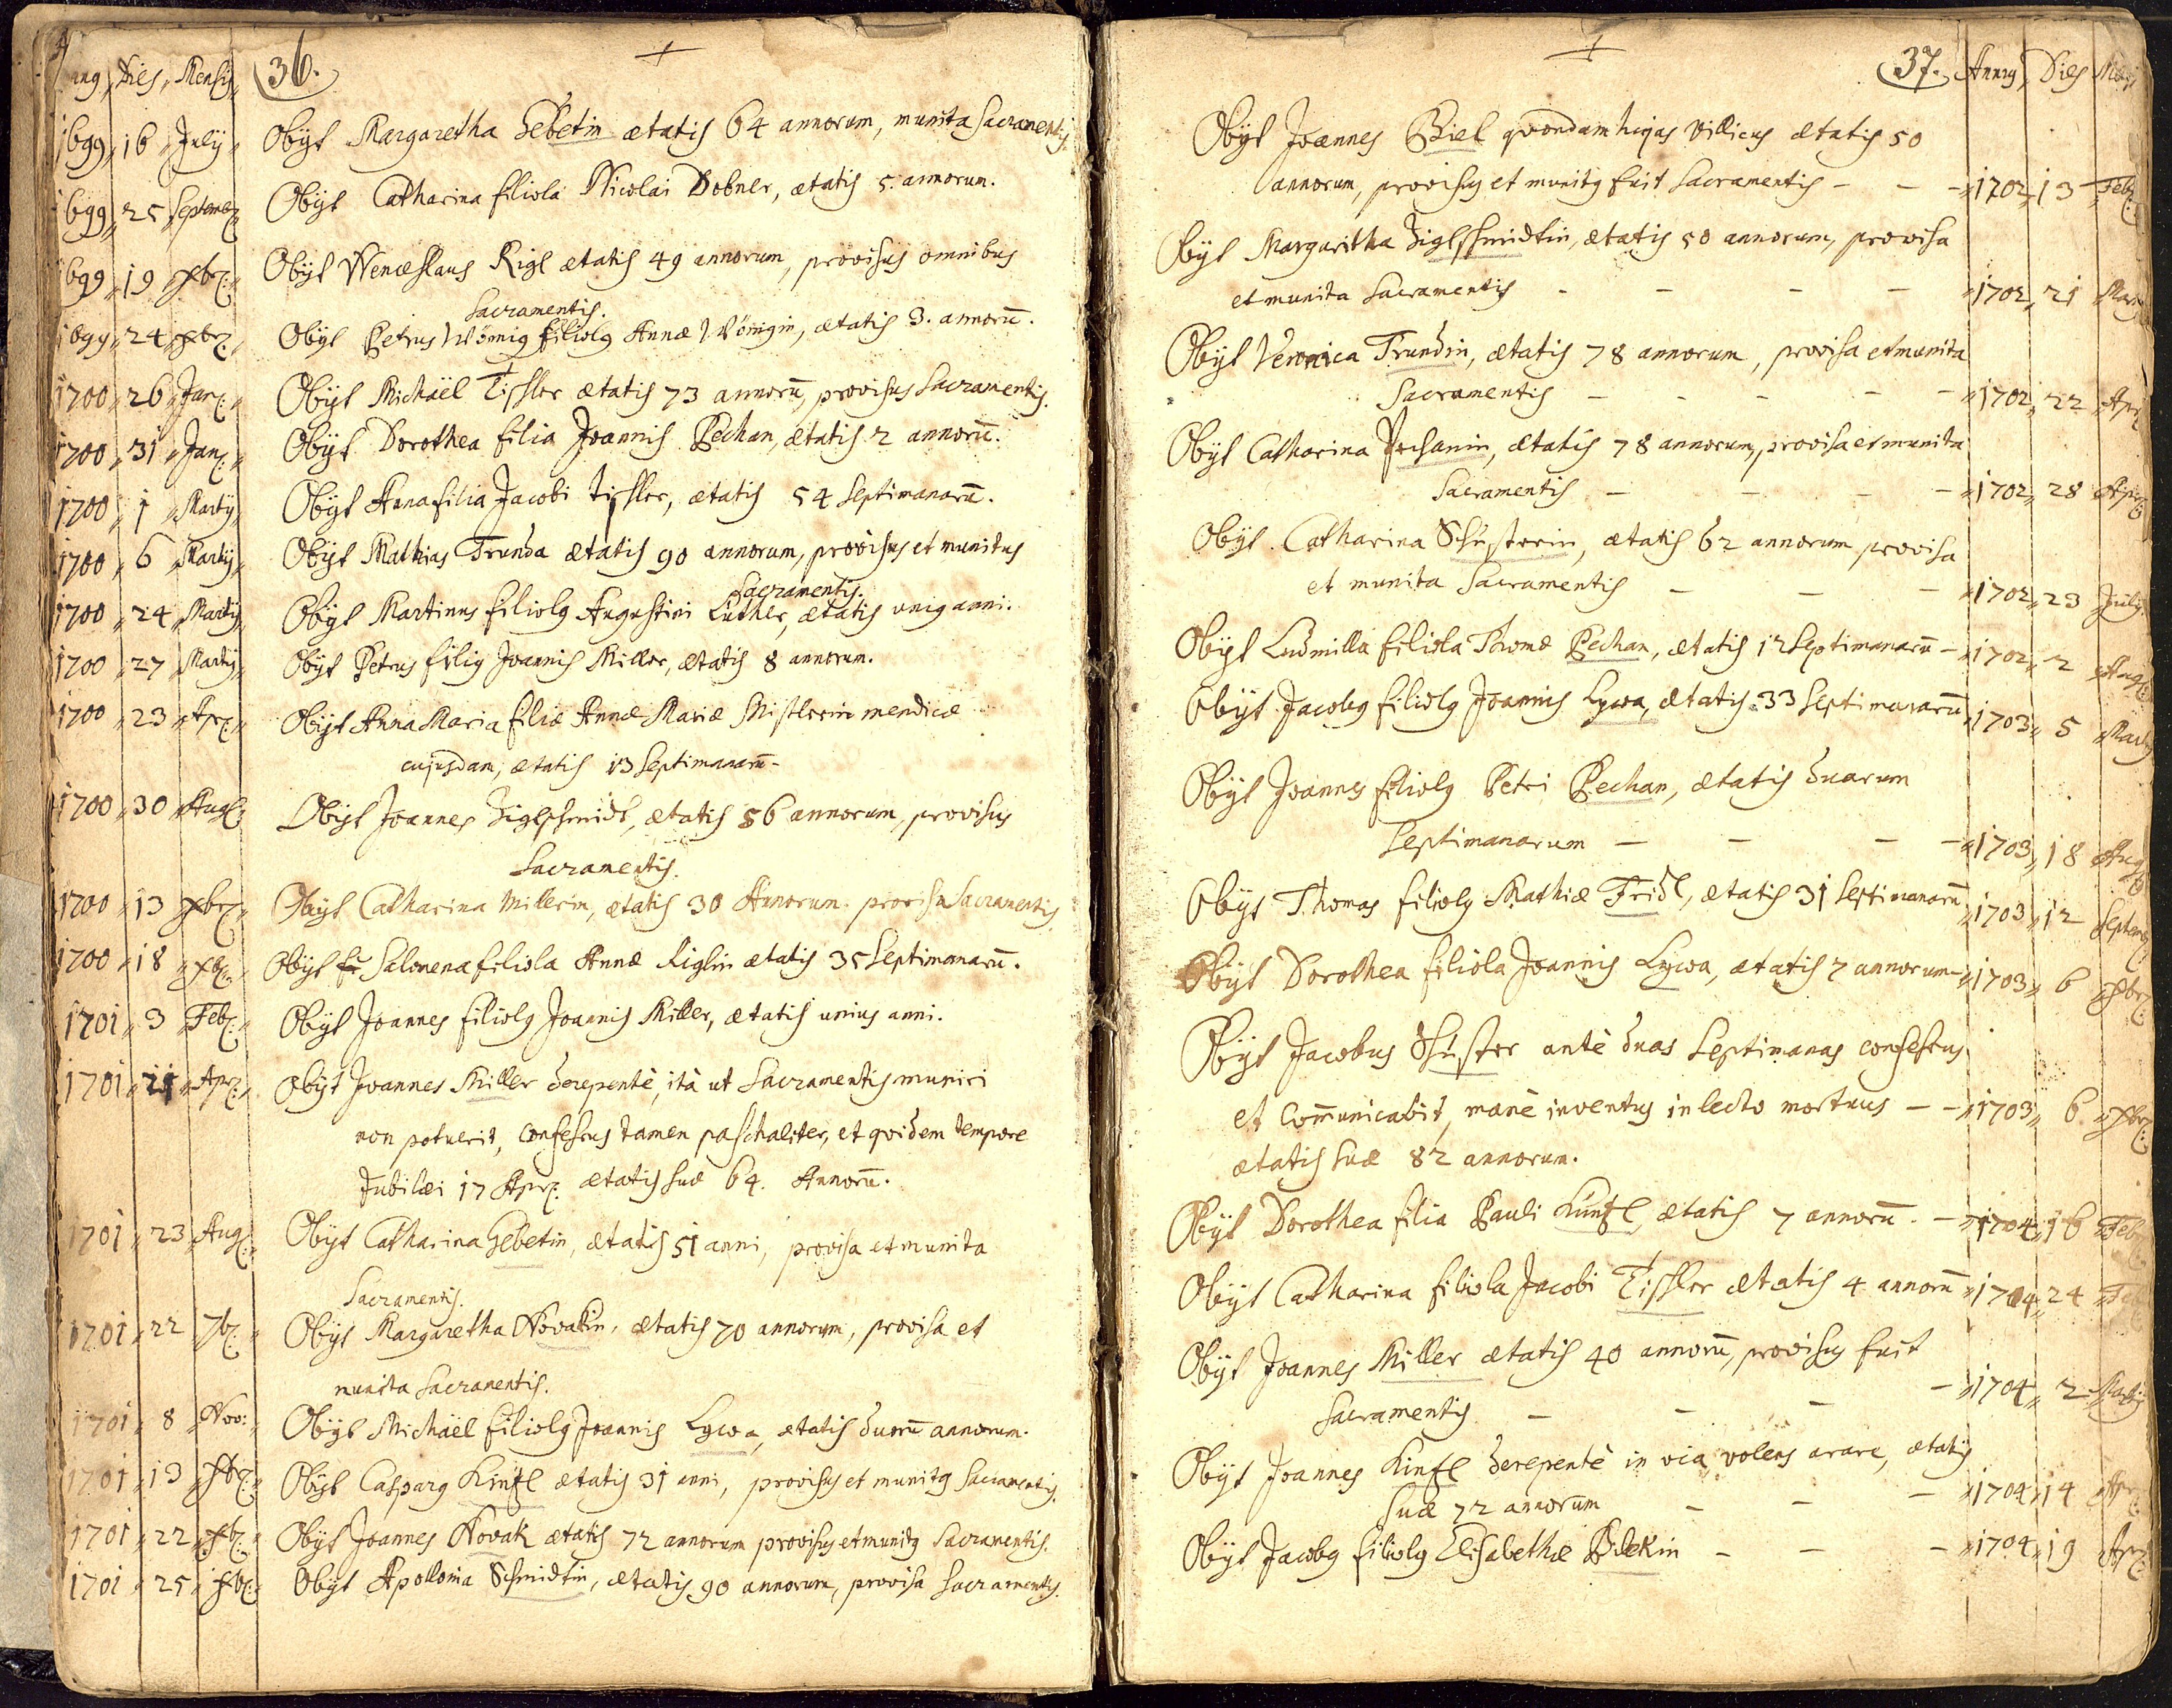 Dies Mensis 36.
1699 16 July Obijt Margaretha Gebetin ætatis 64 annorum, munita sacramentis
1699 25 Septembr: Obijt Catharina filiola Nicolai Dobner, ætatis 5. annorum.
1699 19 Xbr: Obijt Wenceslaus Rigl ætatis 49 annorum, provisus omnibus
Sacramentis.
1699 24 Xbr: Obijt Petrus filiolus Annæ ætatis 3. annorū.
1700 26 Jan: Obijt Michaël Tissler ætatis 73 annorū, provisus sacramentis.
1700 31 Jan: Obijt Dorothea filia Joannis Pechan, ætatis 2 annorū.
1700 1 Martij Obijt Anna filia Jacobi Tissler, ætatis 54 septimanarū.
1700 6 Martij Obijt Mathias Trunda ætatis 90 annorum, provisus et munitus
Sacramentis.
1700 24 Martij Obijt Martinus filiolus Augustini Luther, ætatis unius anni.
1700 27 Martij Obijt Petrus filius Joannis Miller, ætatis 8 annorum.
1700 23 Apr: Obijt Anna Maria filia Annæ Mariæ Mistlerin mendicæ
cujusdam, ætatis 13 septimanarū.
1700 30 Aug: Obijt Joannes Ziglschmidt, ætatis 86 annorum, provisus
Sacramentis.
1700 13 Xbr: Obijt Catharina Millerin, ætatis 30 Annorum provisa Sacramentis
1700 18 Xbr: Obijt Salomena filiola Annæ Riglin ætatis 35 septimanarū.
1701 3 Feb: Obijt Joannes filiolus Joannis Miller, ætatis unius anni.
1701 21 Apr: Obijt Joannes Miller derepentè, ità ut Sacramentis muniri
non potuerit, confessus tamen paschaliter, et qvidem tempore
Jubilæi 17 Apr: ætatis suæ 64. Annorū.
1701 23 Aug: Obijt Catharina Gebetin, ætatis 51 anni, provisa et munita
Sacramentis.
1701 22 7br: Obijt Margaretha Novakin, ætatis 70 annorum, provisa et
munita Sacramentis.
1701 8 Nov: Obijt Michaël filiolus Joannis Lywa, ætatis duorū annorum.
1701 13 Xbr: Obijt Casparus Kintzl ætatis 31 anni, provisus et munitus sacramentis.
1701 22 Xbr: Obijt Joannes Novak ætatis 72 annorum provisus et munitus Sacramentis.
1701 25 Xbr: Obijt Apollonia Schmidtin, ætatis 90 annorum, provisa sacramentis.
37. Annus Dies
Obijt Joannes Biel qvondam hujas Villicus ætatis 50
annorum, provisus et munitus fuit Sacramentis - - 1702 13 Feb:
Obijt Margaritha Ziglschmidtin, ætatis 50 annorum, provisa
et munita Sacramentis - - - - 1702 21 Mar
Obijt Veronica Trundin, ætatis 78 annorum, provisa et munita
Sacramentis - - - - - 1702 22 Apr
Obijt Catharina Pechanin, ætatis 78 annorum, provisa et munita
Sacramentis - - - - 1702 28 Apr:
Obijt Catharina Schusterin, ætatis 62 annorum provisa
et munita Sacramentis - - - 1702 23 July
Obijt Ludmilla filiola Thomæ Pechan, ætatis 12 septimanarū - 1702 2 Aug:
Obijt Jacobus filiolus Joannis Lywa, ætatis 33 septimanarū 1703 5 Martij
Obijt Joannes filiolus Petri Pechan, ætatis duarum
Septimanarum - - - - 1703 18 Aug
Obijt Thomas filiolus Mathiæ Fridl, ætatis 31 septimanarū 1703 12 Septemb
Obijt Dorothea filiola Joannis Lywa, ætatis 7 annorum - 1703 6 Xbr:
Obijt Jacobus Schuster antè duas Septimanas confessus
et com̄unicabit, manè inventus in lecto mortuus - - 1703 6 Xbr:
ætatis suæ 82 annorum.
Obijt Dorothea filia Pauli Kuntzl ætatis 7 annorū. - 1704 16 Feb
Obijt Catharina filiola Jacobi Tissler ætatis 4 annorū 1704 24 Feb
Obijt Joannes Miller ætatis 40 annorū, provisus fuit
Sacramentis - - - - 1704 2 Martij
Obijt Joannes Kintzl derepentè in via volens arare, ætatis
suæ 72 annorum - - - 1704 14 Apr:
Obijt Jacobus filiolus Elisabethæ - - - 1704 19 Apr: